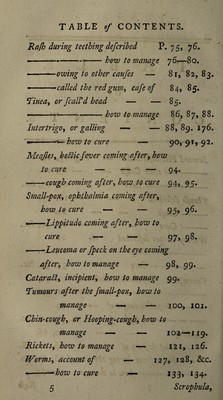 TABLE of CONTENTS.
Rash during teething described P. 75, 76.
——— how to manage 76—80.
———owing to other causes — 81, 82, 83.
———called the red gum, case of 84, 85.
Tinea, or scall'd head — — 85.
——— how to manage 86, 87, 88.
Intertrigo, or galling — — 88, 89. 176.
——— how to cure — — 90, 91, 92.
Measles, hectic fever coming after, how
to cure — — — 94.
———cough coming after, how to cure 94, 95.
Small-pox, ophthalmia coming after,
how to cure — — 95, 96.
———Lippitudo coming after, how to
cure — — — 97, 98.
———Leucoma or speck on the eye coming
after, how to manage — 98, 99.
Cataract, incipient, how to manage 99.
Tumours after the small-pox, how to
manage — — 100, 101.
Chin-cough, or Hooping-cough, how to
manage — — 102—119.
Rickets, how to manage — 121, 126.
Worms, account of — 127, 128, &c.
———how to cure — 133, 134.
5 Scrophula,